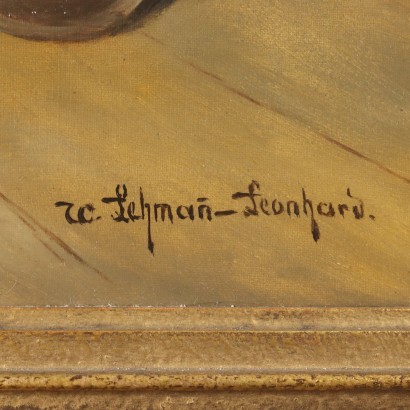 W. Lehmañ-Leonhard.